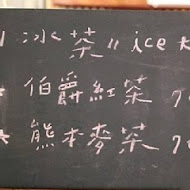 冰茶 ice
伯爵紅茶
熊本麥茶